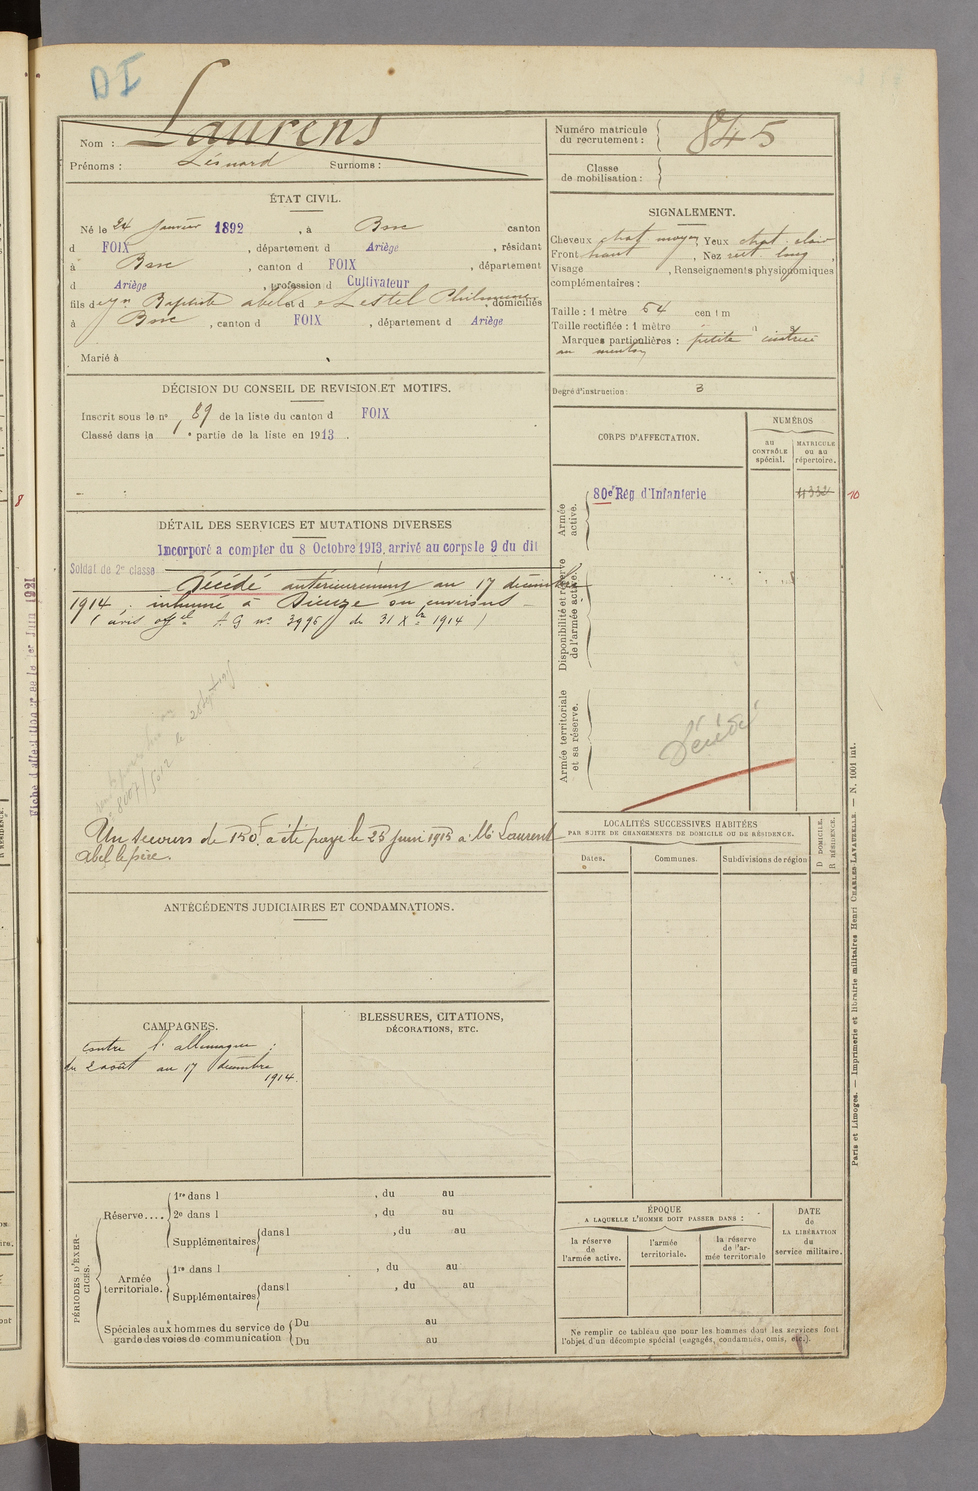 DI
Nom : Laurens
Prénoms : Léonard Surnoms :
Numéro matricule du recrutement : 845
Classe de mobilisation :
ÉTAT CIVIL.
Né le 24 Janvier 1892, à Bosc canton
d FOIX, département d Ariège, résidant
à Bosc, canton d FOIX, département
d Ariège, profession d Cultivateur
fils d Baptiste abel et d e Lestel Philomène, domiciliés
à Bosc, canton d FOIX, département d Ariège
Marié à
DÉCISION DU CONSEIL DE REVISION ET MOTIFS.
Inscrit sous le n° 89 de la liste du canton d FOIX
Classé dans la 1 e partie de la liste en 1913.
DÉTAIL DES SERVICES ET MUTATIONS DIVERSES
Incorporé a compter du 8 Octobre 1913, arrivé au corps le 9 du dit
Soldat de 2e classe
Décédé antérieurement au 17 décembre
1914, inhumé à Dieuze ou environs
(avis offel A G n° 3996 du 31 Xbre 1914)
le 28 Sept 1915
8607/5012
Un secours de 150f a été payé le 25 Juin 1915 à Mr Laurens
Abel le père.
ANTÉCÉDENTS JUDICIAIRES ET CONDAMNATIONS.
CAMPAGNES.
Contre l'allemagne :
du 2 août au 17 décembre
1914.
BLESSURES, CITATIONS,
DÉCORATIONS, ETC.
PÉRIODES D'EXERCICES.
Réserve....
1re dans l , du au
2e dans l , du au
Supplémentaires dans l , du au
Armée territoriale.
1re dans l , du au
Supplémentaires dans l , du au
Spéciales aux hommes du service de garde des voies de communication
Du au
Du au
SIGNALEMENT.
Cheveux chat. moyen, Yeux chat. clair
Front haut, Nez rect. long,
Visage , Renseignements physionomiques
complémentaires :
Taille : 1 mètre 54 centim
Taille rectifiée : 1 mètre
Marques particulières : petite cicatrice
au menton
Degré d'instruction : 3
CORPS D'AFFECTATION.
NUMÉROS
au CONTRÔLE spécial.
MATRICULE ou au répertoire.
Armée active.
80e Rég d'Infanterie
4332
10
Disponibilité et réserve de l'armée active.
Armée territoriale et sa réserve.
Décédé
LOCALITÉS SUCCESSIVES HABITÉES
PAR SUITE DE CHANGEMENTS DE DOMICILE OU DE RÉSIDENCE.
D DOMICILE.
R RÉSIDENCE.
Dates. Communes. Subdivisions de région
ÉPOQUE
A LAQUELLE L'HOMME DOIT PASSER DANS :
la réserve de l'armée active.
l'armée territoriale.
la réserve de l'armée territoriale
DATE
de
LA LIBÉRATION
du
service militaire.
Ne remplir ce tableau que pour les hommes dont les services font
l'objet d'un décompte spécial (engagés, condamnés, omis, etc.).
Paris et Limoges. — Imprimerie et librairie militaires Henri CHARLES-LAVAUZELLE. — N. 1001 int.
8
R RÉSIDENCE.